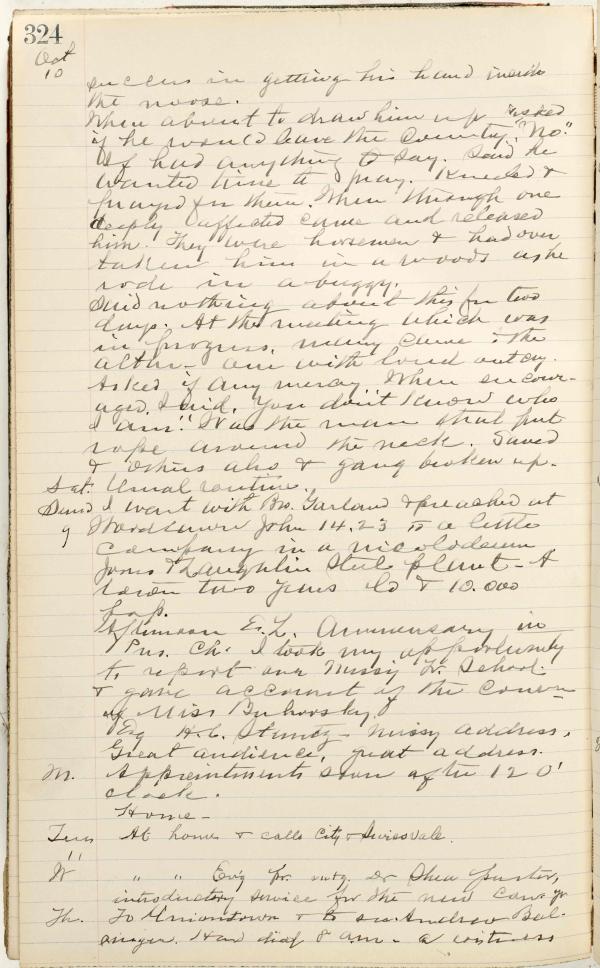 324
Oct
10
success in getting his hand inside
the noose.
When about to draw him up asked
if he would leave the County. "No."
If had anything to say. Said he
wanted time to pray. Kneeled &
prayed for them. When through one
deeply affected came and released
him. They were horsemen & had over
taken him in a woods as he
rode in a buggy.
Said nothing about this for two
days. At the meeting which was
in progress, many came to the
altar - one with loud outcry.
Asked if any mercy. When encour-
aged, I said, You don't know who
I am." Was the man that put
rope around the neck. Saved
& others also & gang broken up.
Sat. Usual routine.
Sund I went with Bro. Garland & preached at
9 Woodlawn John 14.23 to a little
company in a nicolodeum
Jones & Laughlin Steel plant - A
town two years old & 10.000
pop.
Afternoon E.L. Anniversary in
Pres. Ch. I took my opportunity
to report our Missy Tr. School
& gave account of the conver
of Miss
Evg H.C. Stuntz - missy address,
Great audience, great address.
M. Appointments soon after 12 O'
clock.
Home -
Tues At home & calls City & Swissvale.
11
W " " Evg pr. mtg. Dr Shea pastor,
introductory service for the new Conf. yr
Th. To Uniontown & to see Andrew Bal-
singer. Had died 8 am - a witness